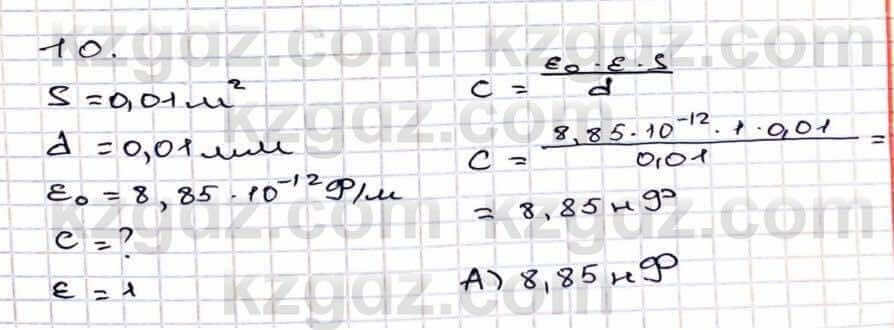 10.
S = 0,01 м²
d = 0,01 мм
ε₀ = 8,85 · 10⁻¹² Ф/м
c = ?
ε = 1
C = ε₀ · ε · S / d
C = 8,85 · 10⁻¹² · 1 · 0,01 / 0,01 =
= 8,85 нФ
А) 8,85 нФ
kzgdz.com
kzgdz.com
kzgdz.com
kzgdz.com
kzgdz.com
kzgdz.com
kzgdz.com
kzgdz.com